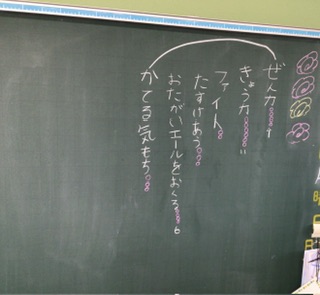 ぜん力
きょう力
ファイト
たすけあう
おたがいエールをおくる
かてる気もち